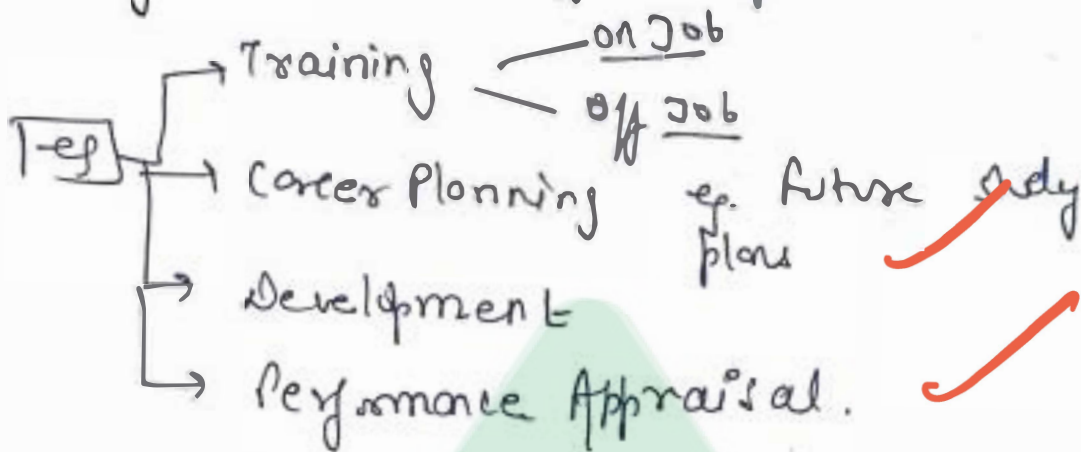 Training
on Job
off Job
eg
Career Planning eg. future
plans
Development
Performance Appraisal.